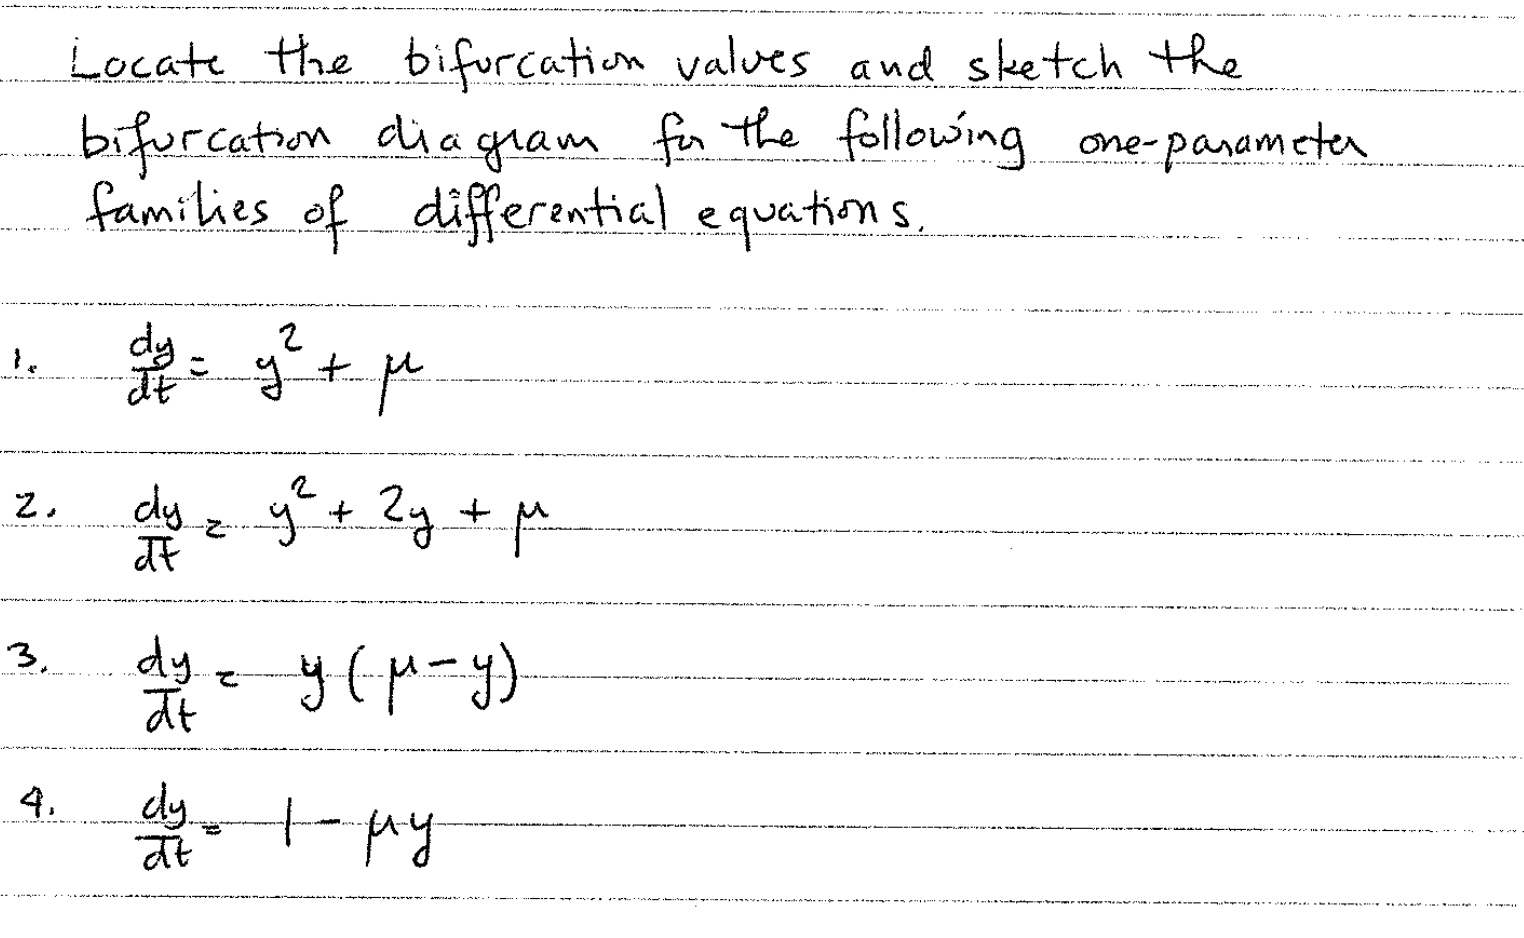 Locate the bifurcation values and sketch the
bifurcation diagram for the following one-parameter
families of differential equations.
1. dy/dt = y² + μ
2. dy/dt = y² + 2y + μ
3. dy/dt = y(μ-y)
4. dy/dt = 1 - μy